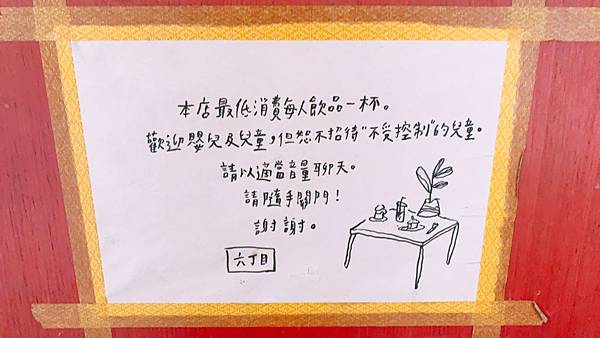 本店最低消費每人飲品一杯。
歡迎嬰兒及兒童,但恕不招待"不受控制"的兒童。
請以適當音量聊天。
請隨手關門!
謝謝。
六丁目